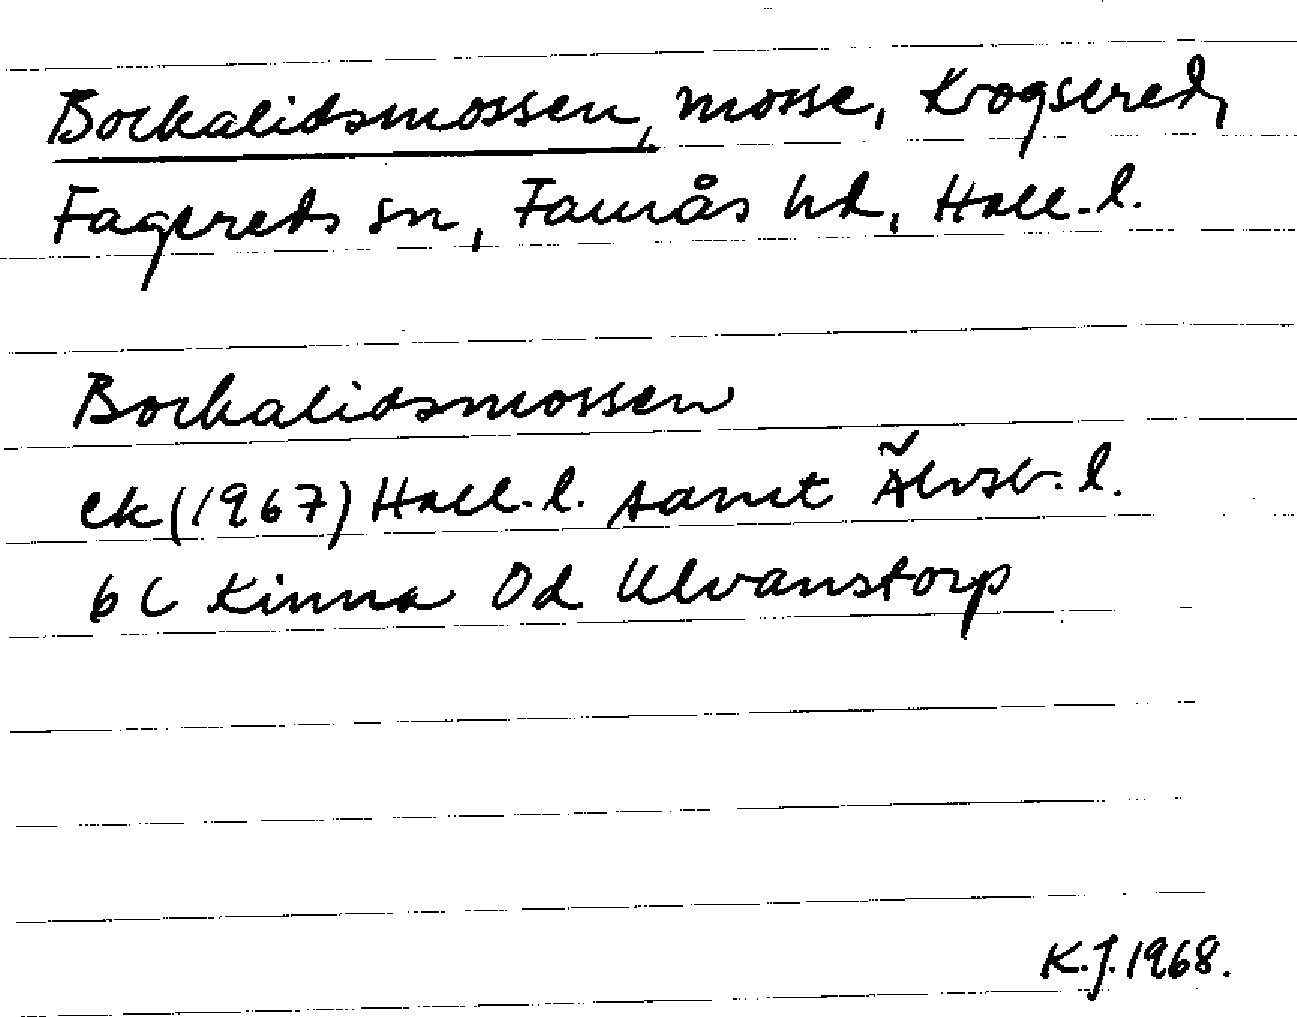 Bockalidsmossen, mosse, Krogsered,
Fagereds sn, Faurås hd, Hall. l.
Bockalidsmossen
ek (1967) Hall. l. samt Älvsb. l.
6 C Kinna 0d Ulvanstorp
K.J. 1968.